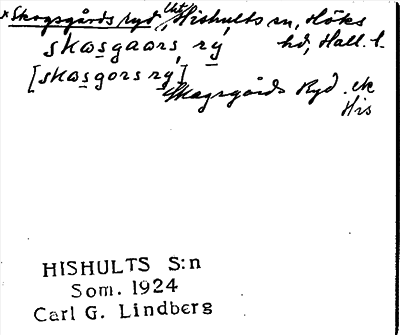 Skogsgårds ryd, Hishults sn, Höks
skosgaars, ry hd, Hall. l.
[skosgors ry]
Skogsgårds Ryd. ek
His
HISHULTS S:n
Som. 1924
Carl G. Lindberg